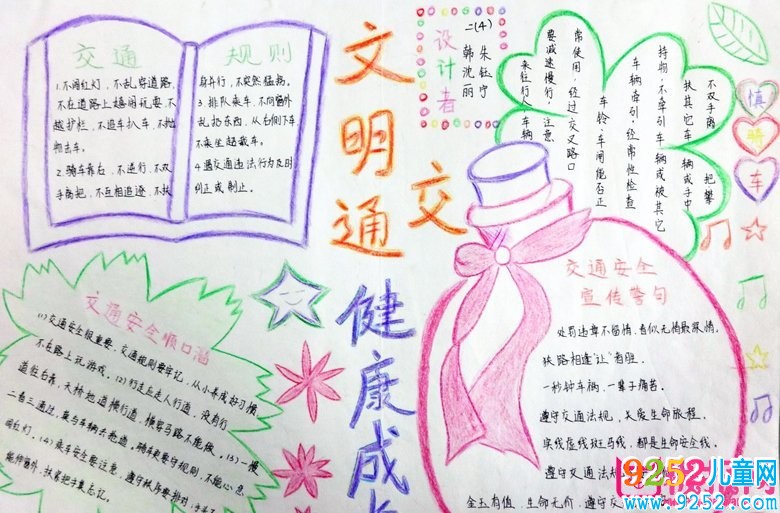 交通
1.不闯红灯，不乱穿道路，
不在道路上嬉闹玩耍，不
越护栏，不追车扒车，不抛
物击车。
2.骑车靠右，不逆行，不双
手离把，不互相追逐，不扶
规则
身并行，不突然猛拐。
3.排队乘车，不向窗外
乱扔东西，从右侧下车
不乘坐超载车。
4.遇交通违法行为及时
纠正或制止。
文明交通
健康成长
二(4)
设计者
朱钰宁
韩沈丽
不双手离把攀
扶其它车辆或手中
持物，不牵引车辆或被其它
车辆牵引，经常性检查
车铃、车闸能否正
常使用，经过交叉路口
要减速慢行，注意
来往行人车辆
慎骑车
交通安全顺口溜
(1)交通安全很重要，交通规则要牢记，从小养成好习惯
不在路上玩游戏。(2)行走应走人行道，没有行
道往右靠，天桥地道横行道，横穿马路不能做。(3)一慢
二看三通过，莫与车辆去抢道，骑车更要守规则，不能心急
闯红灯，(4)乘车安全要注意，遵守秩序要排队，
能伸窗外，扶紧把手莫忘记。
交通安全
宣传警句
处罚违章不留情，看似无情最深情。
狭路相逢"让"者胜。
一秒钟车祸，一辈子痛苦。
遵守交通法规，关爱生命旅程。
实线虚线斑马线，都是生命安全线。
遵守交通法规
金玉有值，生命无价，遵守交
9252儿童网
www.9252.com